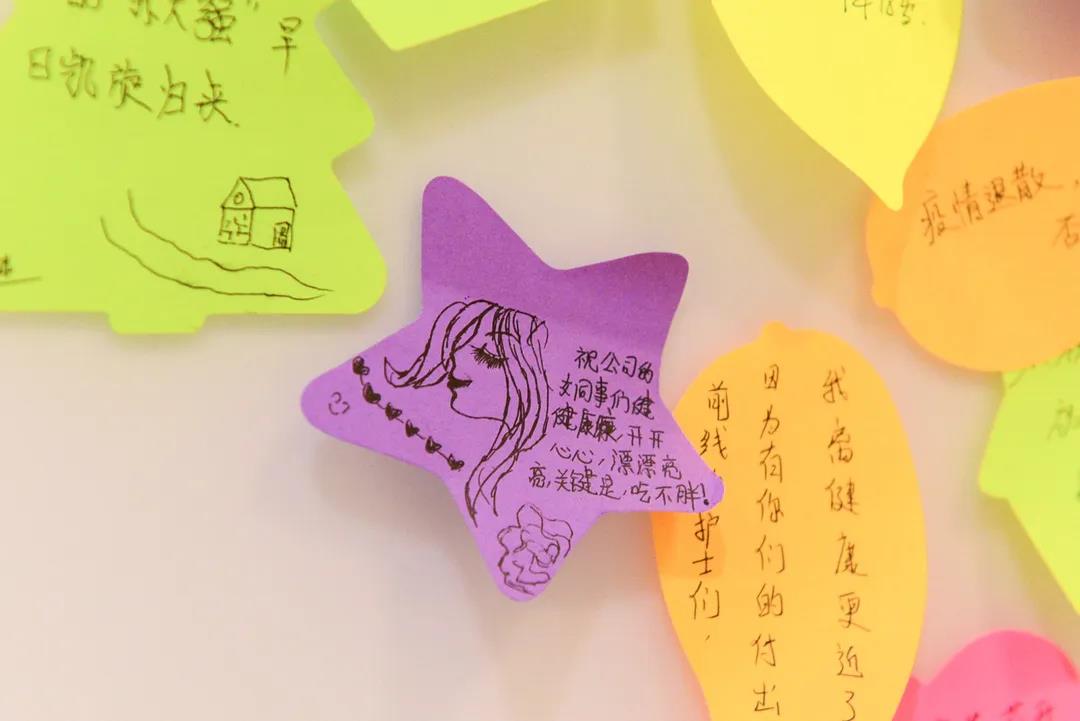 早
日凯旋归来.
祝公司的
女同事们健
健康康,开开
心心,漂漂亮
亮,关键是,吃不胖!
疫情退散,
前线
护士们,
因为有你们的付出
我离健康更近了